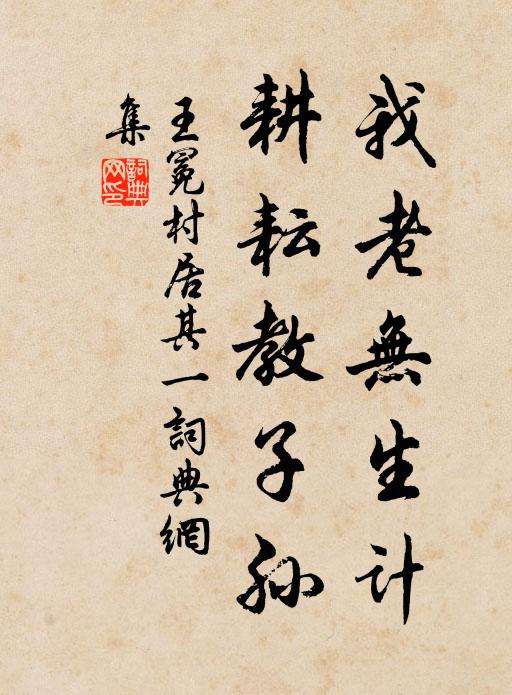 我老無生計
耕耘教子孫
王冕村居其一詞典網
集
詞典
网印